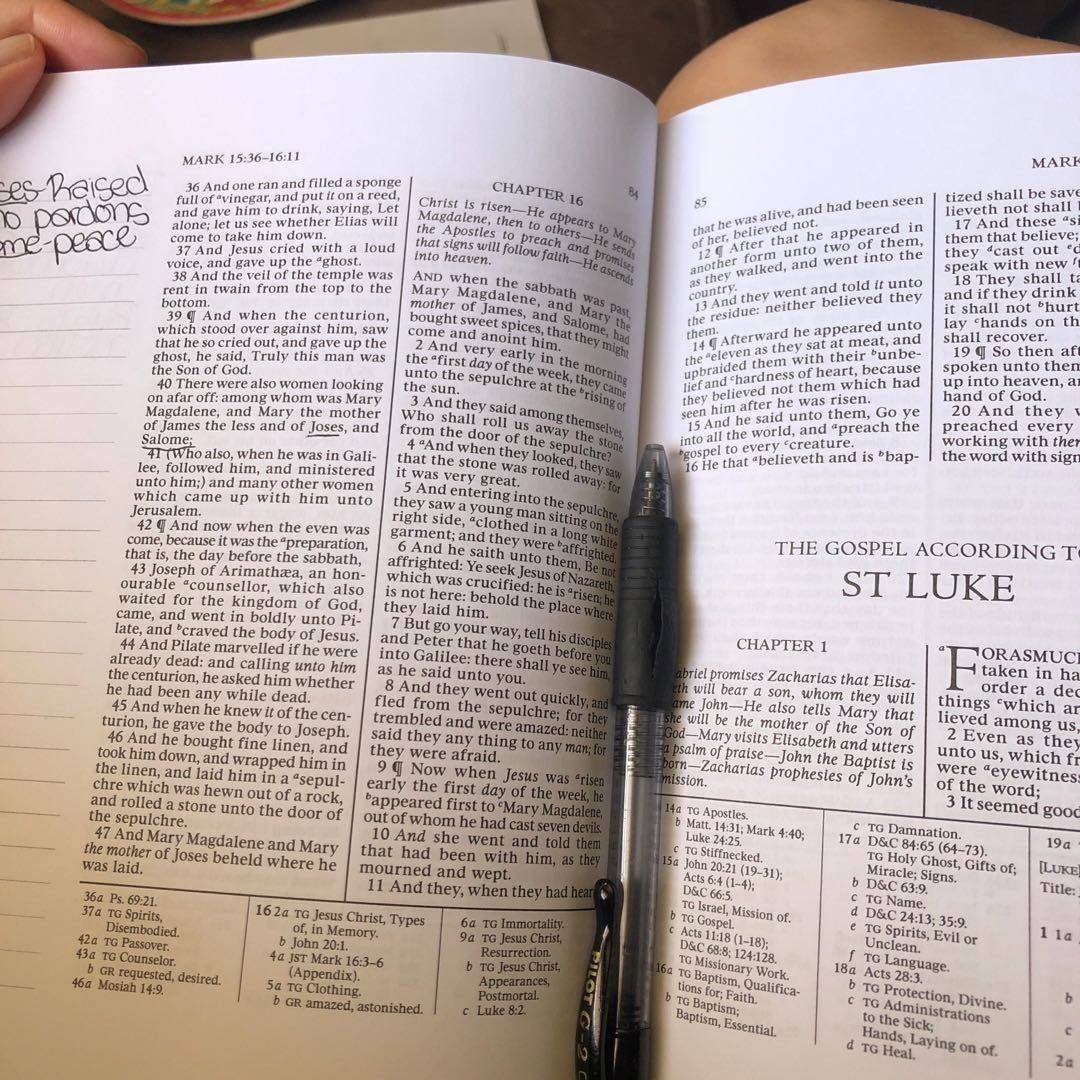 MARK 15:36–16:11
84
ses-Raised
no pardons
ome-peace
36 And one ran and filled a sponge
full of ᵃvinegar, and put it on a reed,
and gave him to drink, saying, Let
alone; let us see whether Elias will
come to take him down.
37 And Jesus cried with a loud
voice, and gave up the ᵃghost.
38 And the veil of the temple was
rent in twain from the top to the
bottom.
39 ¶ And when the centurion,
which stood over against him, saw
that he so cried out, and gave up the
ghost, he said, Truly this man was
the Son of God.
40 There were also women looking
on afar off: among whom was Mary
Magdalene, and Mary the mother
of James the less and of Joses, and
Salome;
41 (Who also, when he was in Gali-
lee, followed him, and ministered
unto him;) and many other women
which came up with him unto
Jerusalem.
42 ¶ And now when the even was
come, because it was the ᵃpreparation,
that is, the day before the sabbath,
43 Joseph of Arimathæa, an hon-
ourable ᵃcounsellor, which also
waited for the kingdom of God,
came, and went in boldly unto Pi-
late, and ᵇcraved the body of Jesus.
44 And Pilate marvelled if he were
already dead: and calling unto him
the centurion, he asked him whether
he had been any while dead.
45 And when he knew it of the cen-
turion, he gave the body to Joseph.
46 And he bought fine linen, and
took him down, and wrapped him in
the linen, and laid him in a ᵃsepul-
chre which was hewn out of a rock,
and rolled a stone unto the door of
the sepulchre.
47 And Mary Magdalene and Mary
the mother of Joses beheld where he
was laid.
CHAPTER 16
Christ is risen—He appears to Mary
Magdalene, then to others—He sends
the Apostles to preach and promises
that signs will follow faith—He ascends
into heaven.
AND when the sabbath was past,
Mary Magdalene, and Mary the
mother of James, and Salome, had
bought sweet spices, that they might
come and anoint him.
2 And very early in the morning
the ᵃfirst day of the week, they came
unto the sepulchre at the ᵇrising of
the sun.
3 And they said among themselves,
Who shall roll us away the stone
from the door of the sepulchre?
4 ᵃAnd when they looked, they saw
that the stone was rolled away: for
it was very great.
5 And entering into the sepulchre,
they saw a young man sitting on the
right side, ᵃclothed in a long white
garment; and they were ᵇaffrighted.
6 And he saith unto them, Be not
affrighted: Ye seek Jesus of Nazareth,
which was crucified: he is ᵃrisen; he
is not here: behold the place where
they laid him.
7 But go your way, tell his disciples
and Peter that he goeth before you
into Galilee: there shall ye see him,
as he said unto you.
8 And they went out quickly, and
fled from the sepulchre; for they
trembled and were amazed: neither
said they any thing to any man; for
they were afraid.
9 ¶ Now when Jesus was ᵃrisen
early the first day of the week, he
ᵇappeared first to ᶜMary Magdalene,
out of whom he had cast seven devils.
10 And she went and told them
that had been with him, as they
mourned and wept.
11 And they, when they had hear
36a Ps. 69:21.
37a TG Spirits,
Disembodied.
42a TG Passover.
43a TG Counselor.
b GR requested, desired.
46a Mosiah 14:9.
16 2a TG Jesus Christ, Types
of, in Memory.
b John 20:1.
4a JST Mark 16:3–6
(Appendix).
5a TG Clothing.
b GR amazed, astonished.
6a TG Immortality.
9a TG Jesus Christ,
Resurrection.
b TG Jesus Christ,
Appearances,
Postmortal.
c Luke 8:2.
PILOT G-2
85
MARK
that he was alive, and had been seen
of her, believed not.
12 ¶ After that he appeared in
another form unto two of them,
as they walked, and went into the
country.
13 And they went and told it unto
the residue: neither believed they
them.
14 ¶ Afterward he appeared unto
the ᵃeleven as they sat at meat, and
upbraided them with their ᵇunbe-
lief and ᶜhardness of heart, because
they believed not them which had
seen him after he was risen.
15 And he said unto them, Go ye
into all the world, and ᵃpreach the
ᵇgospel to every ᶜcreature.
16 He that ᵃbelieveth and is ᵇbap-
tized shall be save
lieveth not shall
17 And these ᵃsi
them that believe;
they ᵈcast out ᵉd
speak with new ᶠt
18 They shall ta
and if they drink
it shall not ᵇhurt
lay ᶜhands on th
shall recover.
19 ¶ So then aft
spoken unto them
up into heaven, a
hand of God.
20 And they w
preached every
working with ther
the word with sign
THE GOSPEL ACCORDING TO
ST LUKE
CHAPTER 1
abriel promises Zacharias that Elisa-
eth will bear a son, whom they will
ame John—He also tells Mary that
she will be the mother of the Son of
God—Mary visits Elisabeth and utters
a psalm of praise—John the Baptist is
born—Zacharias prophesies of John's
mission.
ᵃFORASMUC
taken in ha
order a dec
things ᶜwhich ar
lieved among us,
2 Even as they
unto us, which fr
were ᵃeyewitness
of the word;
3 It seemed good
14a TG Apostles.
b Matt. 14:31; Mark 4:40;
Luke 24:25.
c TG Stiffnecked.
15a John 20:21 (19–31);
Acts 6:4 (1–4);
D&C 66:5.
TG Israel, Mission of.
b TG Gospel.
c Acts 11:18 (1–18);
D&C 68:8; 124:128.
TG Missionary Work.
16a TG Baptism, Qualifica-
tions for; Faith.
b TG Baptism;
Baptism, Essential.
c TG Damnation.
17a D&C 84:65 (64–73).
TG Holy Ghost, Gifts of;
Miracle; Signs.
b D&C 63:9.
c TG Name.
d D&C 24:13; 35:9.
e TG Spirits, Evil or
Unclean.
f TG Language.
18a Acts 28:3.
b TG Protection, Divine.
c TG Administrations
to the Sick;
Hands, Laying on of.
d TG Heal.
19a
[LUKE]
Title:
1 1a
b
c
2a